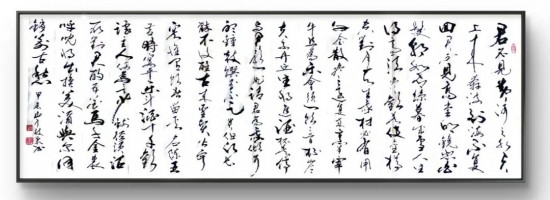 君不見黃河之水天
上來奔流到海不復
回君不見高堂明鏡悲白
髮朝如青絲暮成雪人生
得意須盡歡莫使金樽
空對月天生我材必有用
千金散盡還復來烹羊宰
牛且為樂會須一飲三百杯岑
夫子丹丘生將進酒杯莫停
與君歌一曲請君為我傾耳
聽鐘鼓饌玉不足貴但願長
醉不復醒古來聖賢皆寂
寞惟有飲者留其名陳王
昔時宴平樂斗酒十千恣歡
謔主人何為言少錢徑須沽
取對君酌五花馬千金裘
呼兒將出換美酒與爾同
銷萬古愁